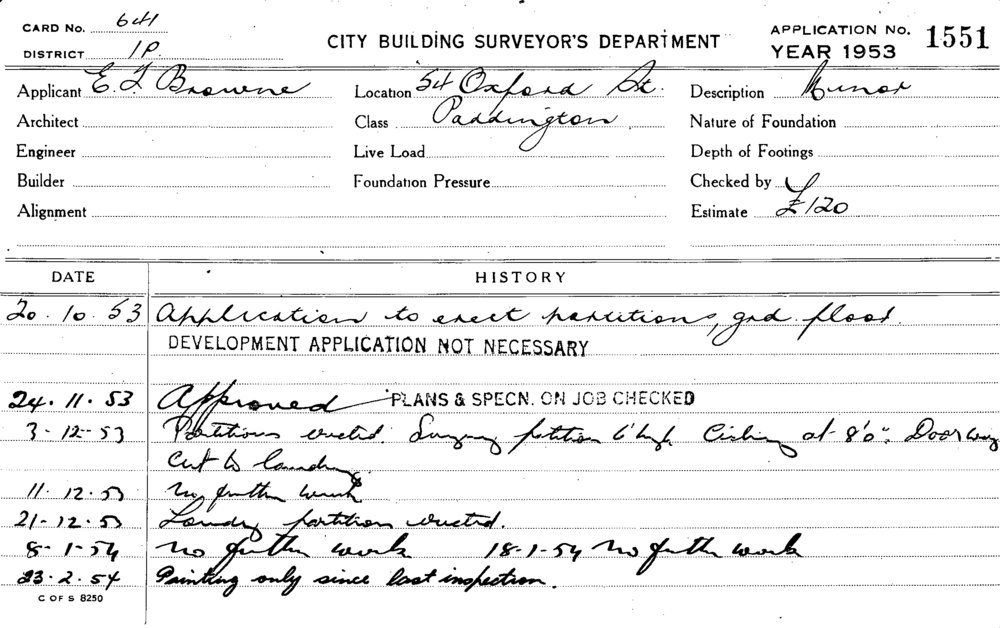 CARD NO. 641
DISTRICT 1P.
CITY BUILDING SURVEYOR'S DEPARTMENT
APPLICATION NO. 1551
YEAR 1953
Applicant E. J Browne
Location 54 Oxford St.
Description Minor
Architect
Class Paddington
Nature of Foundation
Engineer
Live Load
Depth of Footings
Builder
Foundation Pressure
Checked by
Alignment
Estimate £120
DATE HISTORY
20.10.53 Application to erect partitions, grd. floor.
DEVELOPMENT APPLICATION NOT NECESSARY
24.11.53 Approved PLANS & SPECN. ON JOB CHECKED
3-12-53 Partitions erected. partition 6' high. Ceiling at 8'0". Doorway
cut to laundry.
11.12.53 No further work
21-12.53 Laundry partition erected.
8-1-54 No further work 18-1-54 No further work
23.2.54 Painting only since last inspection.
C OF S 8250